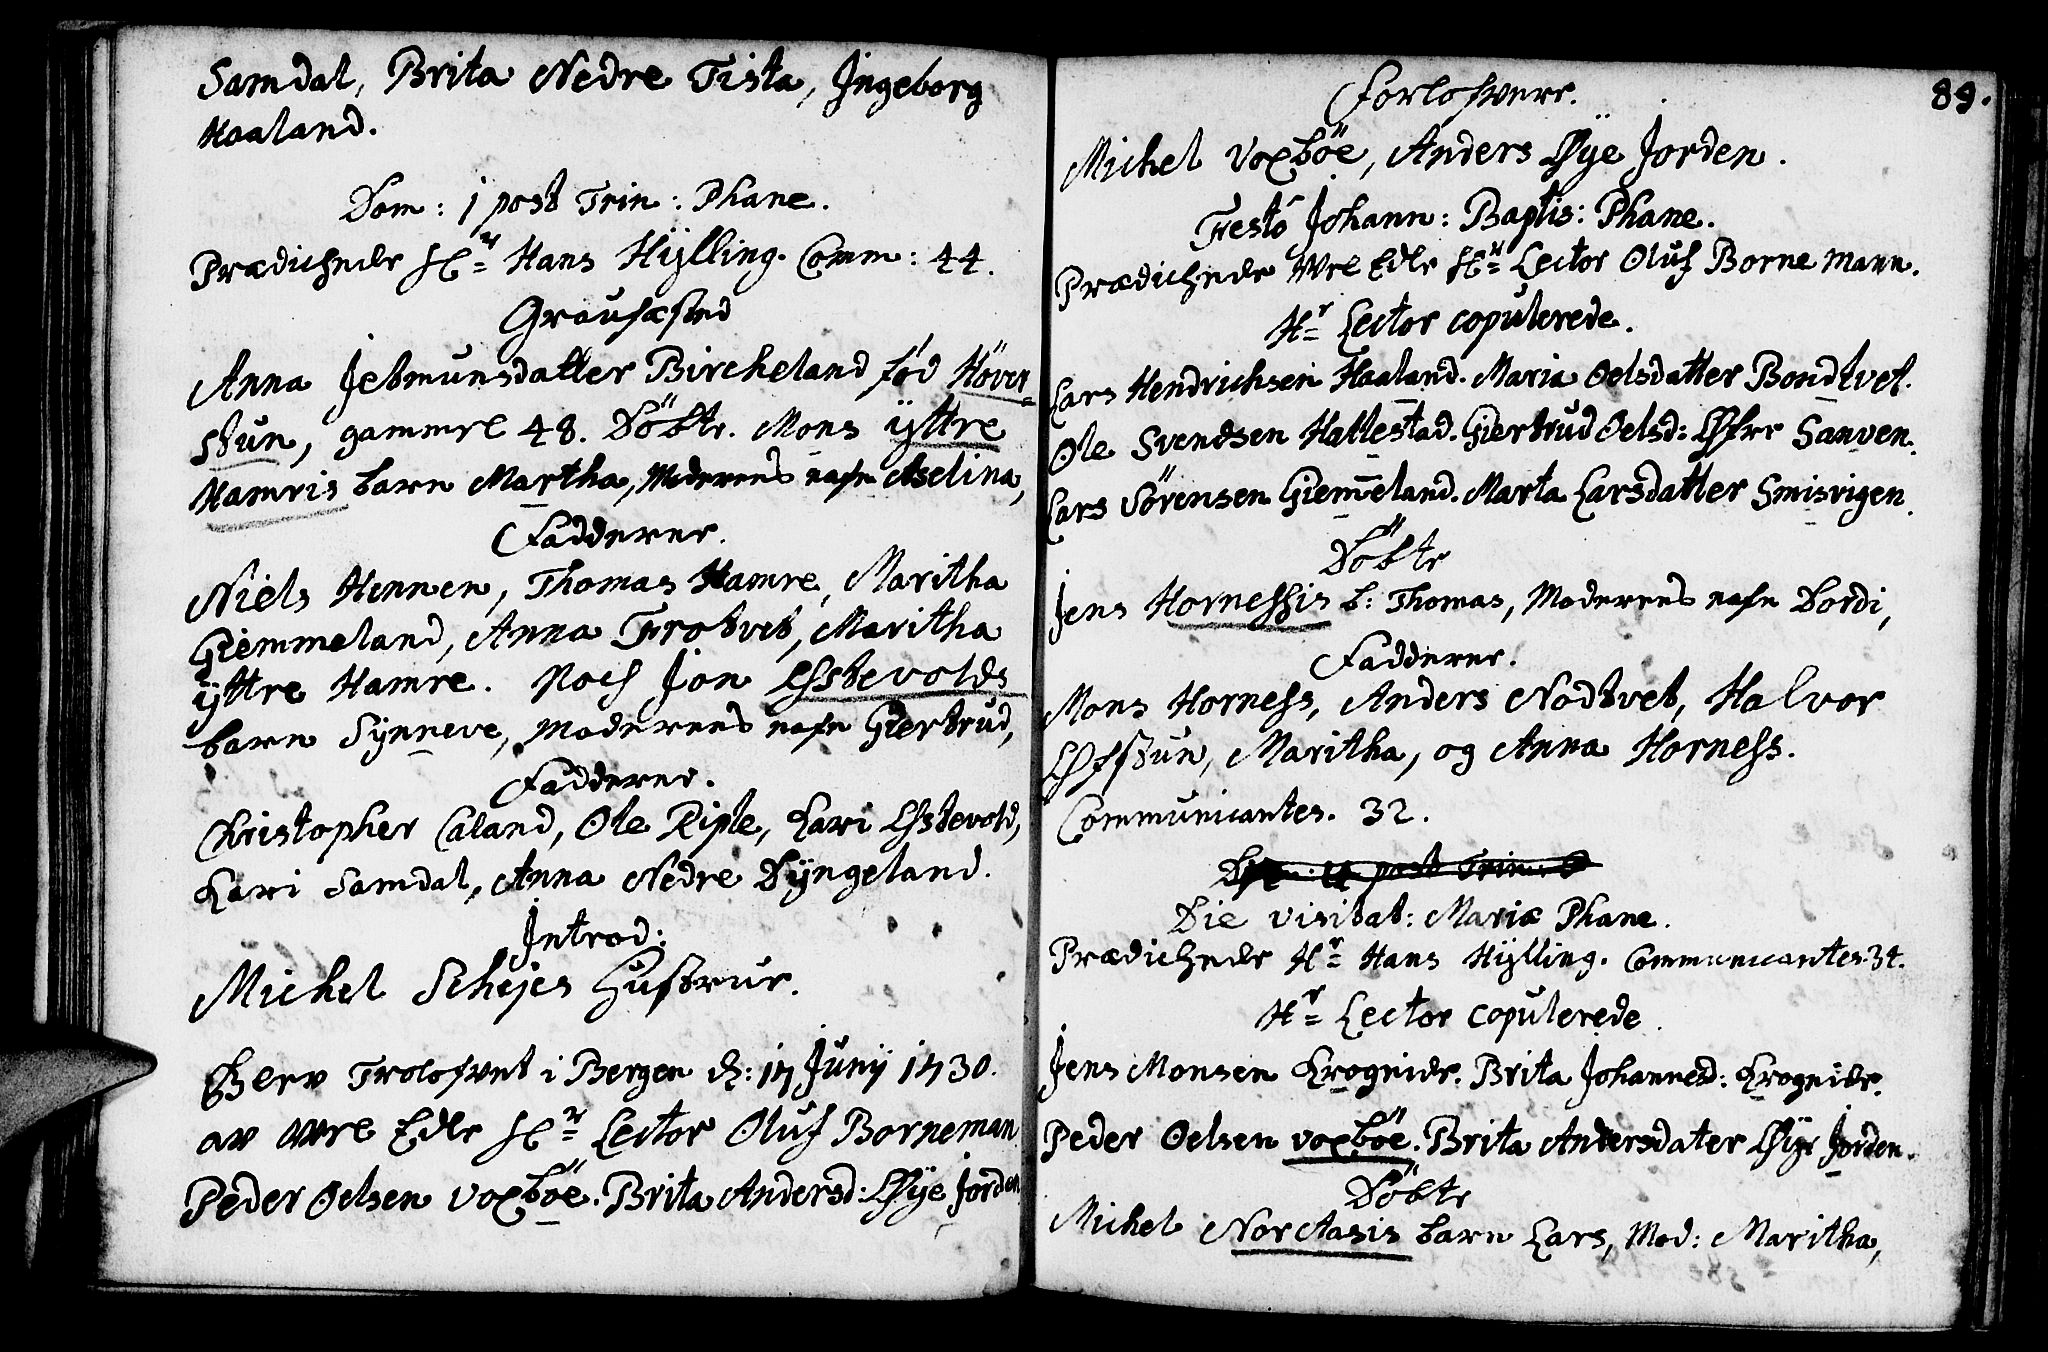 Samdal, Brita Nedre Tista, Jngeborg
Haaland.
Dom: 1 post Trin: Phane.
Prædichede Hr Hans Hÿlling. Comm: 44.
Graufæsted
Anna Jetmunsdatter Bircheland fød Höver
stun, gammel 48. Döbte. Mons ÿttre
Hamris barn Martha, Moderens nafn Aselina,
Fadderer.
Niels Hennen, Thomas Hamre, Maritha
Giemmeland, Anna Trotvet, Maritha
ÿttre Hamre. Noch Jon Østevolds
barn Sÿnneve, Moderens nafn Giertrud,
Fadderer.
Christopher Caland, Ole Riple, Kari Østevold,
Kari Samdal, Anna Nedre Dÿngeland.
Introd:
Michel Schejes Hustrue.
Blev Trolofvet i Bergen d: 17 Junÿ 1730.
av Wel Edle Hr Lector Oluf Borneman
Peder Oelsen Voxböe. Brita Andersd: Øÿe Jorden
89.
Forlofvere.
Michel Voxböe, Anders Øÿe Jorden.
Festo Johann: Baptis: Phane.
Prædichede Wel Edle Hr Lector Oluf Bornemann.
Hr Lector copulerede.
Lars Hendrichsen Haaland. Maria Oelsdatter Bondtvet.
Ole Svendsen Hattestad. Giertrud Oelsd: Øfre Sanven.
Lars Sörensen Giem̅eland. Marta Larsdatter Smisvigen.
Döbte
Jens Hornessis b: Thomas, Moderens nafn Dordi,
Fadderer.
Mons Horness, Anders Nodtvet, Halvor
Øfstun, Maritha, og Anna Horness.
Communicantes. 32.
post Trin:
Die visitat: Mariæ Phane.
Prædichede Hr Hans Hÿlling. Communicantes. 34.
Hr Lector copulerede.
Jens Monsen Krogeide. Brita Johannesd: Krogeide.
Peder Oelsen voxböe. Brita Andersdater Øÿe Jorden.
Döbte
Michel NorAasis barn Lars, Mod: Maritha,